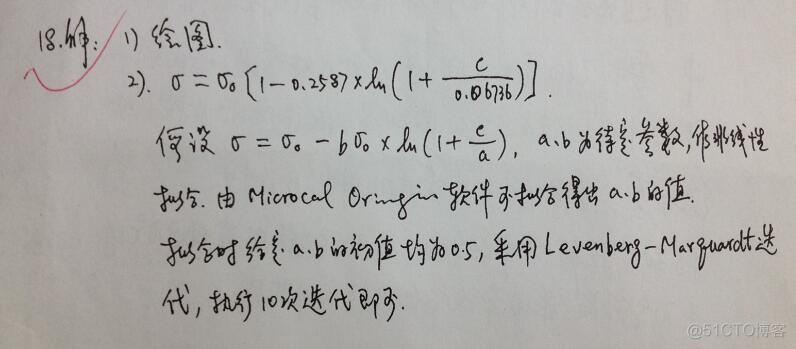 18.解: 1) 绘图.
2). σ = σ₀ [1 - 0.2587 × ln(1 + c/0.06736)].
假设 σ = σ₀ - bσ₀ × ln(1 + c/a), a.b 为待定参数, 作非线性
拟合. 由 Microcal Oringin 软件可拟合得出 a.b 的值.
拟合时给定 a.b 的初值均为 0.5, 采用 Levenberg-Marquardt 迭
代, 执行 10 次迭代即可.
@51CTO博客